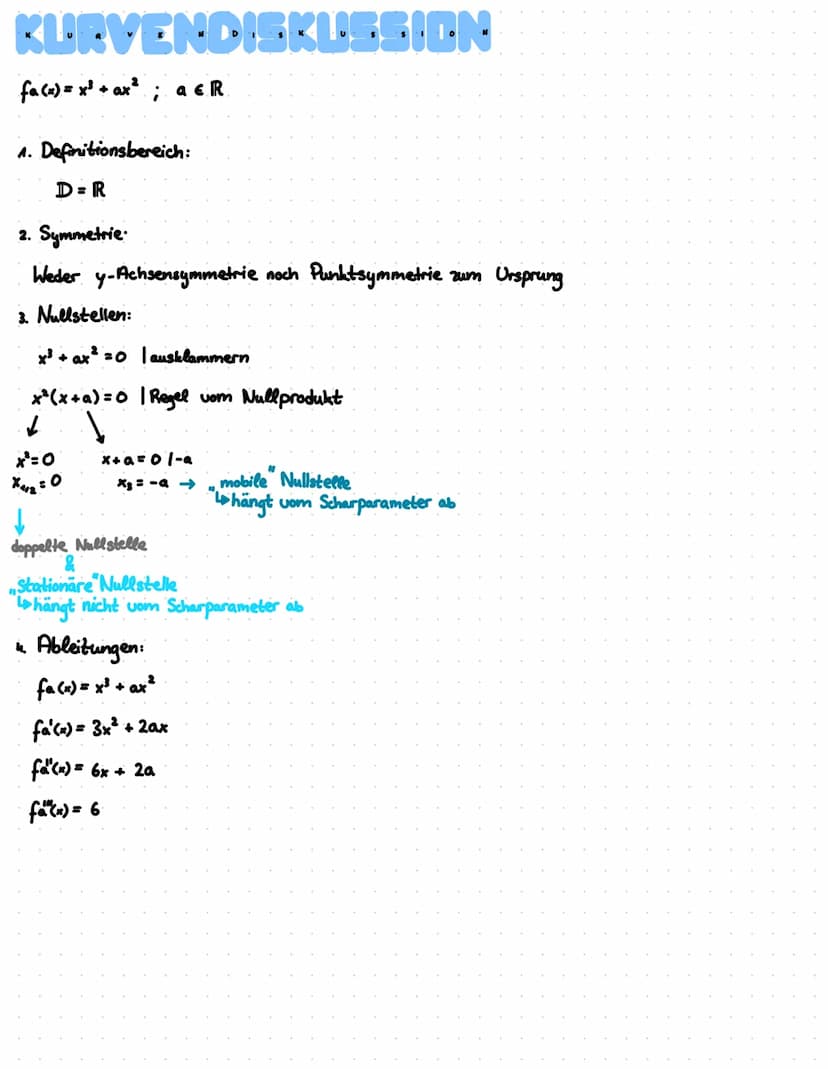 KURVENDISKUSSION
fa(x) = x³ + ax² ; a ∈ ℝ
1. Definitionsbereich:
𝔻 = ℝ
2. Symmetrie:
Weder y-Achsensymmetrie noch Punktsymmetrie zum Ursprung
3. Nullstellen:
x³ + ax² = 0 | ausklammern
x²(x+a) = 0 | Regel vom Nullprodukt
↙ ↘
x² = 0 x + a = 0 | -a
x₁/₂ = 0 x₃ = -a → „mobile" Nullstelle
↳ hängt vom Scharparameter ab
↓
doppelte Nullstelle
&
„Stationäre" Nullstelle
↳ hängt nicht vom Scharparameter ab
4. Ableitungen:
fa(x) = x³ + ax²
fa'(x) = 3x² + 2ax
fa''(x) = 6x + 2a
fa'''(x) = 6